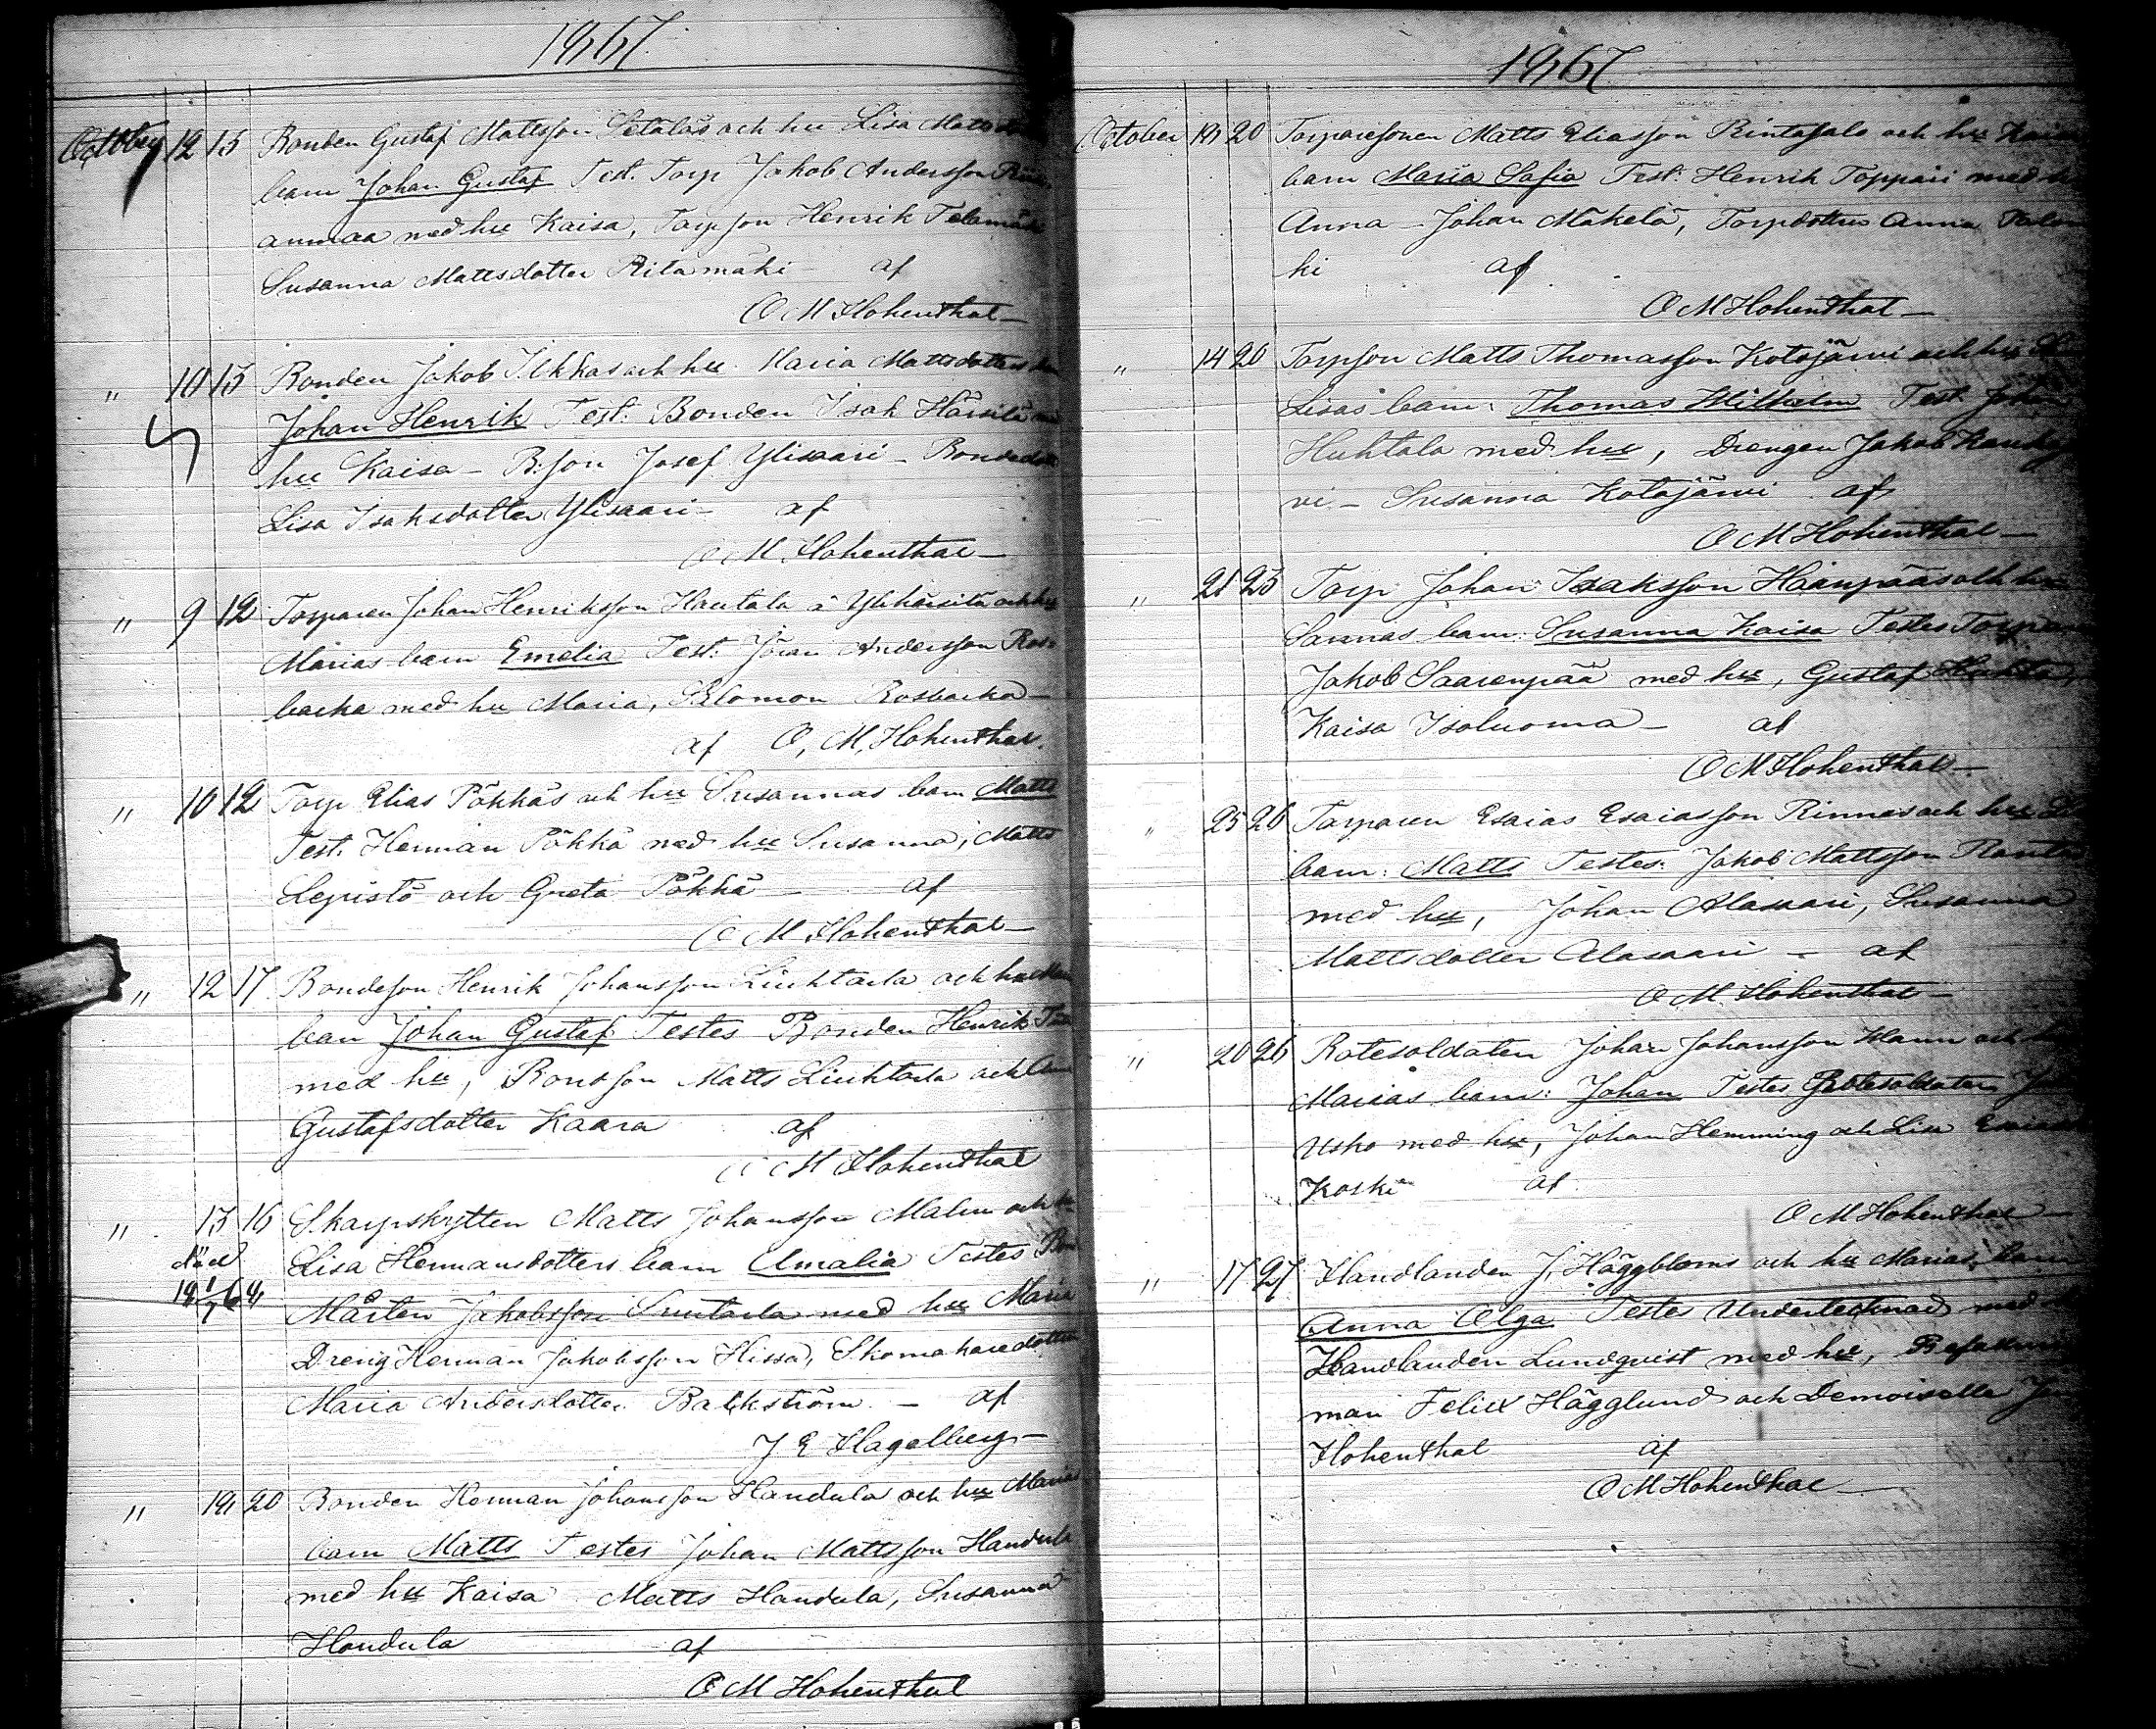 1867
October 12 13 Bonden Gustaf Mattsson Setäläs och hu Lisa Matts
barn Johan Gustaf Test. Torp Jakob Andersson
anmaa med hu Kaisa, Torpson Henrik
Susanna Mattsdotter Ritamäki af
O M Hohenthal
" 10 13 Bonden Jakob Ilkkas och hu Maria Mattsdotters
Johan Henrik Test. Bonden Isak Härsilä
hu Kaisa - B:son Josef Ylisaari - Bonded
Lisa Isaksdotter Ylisaari - af
O M Hohenthal
" 9 12 Torparen Johan Henriksson Hautala å Ylihärsilä och hu
Marias barn Emelia Test. Jöran Andersson Ros-
backa med hu Maria, Salomon Rosbacka
af O, M, Hohenthal.
" 10 12 Torp Elias Pökkäs och hu Susannas barn Matts
Test. Herman Pökkä med hu Susanna, Matts
Lepistö och Greta Pökkä - af
O M Hohenthal
" 12 17 Bondeson Henrik Johansson Liuhtarla och hu
barn Johan Gustaf Testes Bonden Henrik
med hu, Bondson Matts Liuhtarla och
Gustafsdotter Kaara af
O M Hohenthal
" 13 16 Skarpskytten Matts Johansson Malm och
död Lisa Hermansdotters barn Amalia Testes
Mårten Jakobsson Suutarla med hu Maria
Dreng Herman Jakobsson Hissa, Skomakaredotter
Maria Andersdotter Backström - af
J E Hagelberg
" 18 20 Bonden Herman Johansson Handula och hu Marias
barn Matts Testes Johan Mattsson Handula
med hu Kaisa Matts Handula, Susanna
Handula af
O M Hohenthal
1867
October 18 20 Torparesonen Matts Eliasson Rintasalo och hu
barn Maria Sofia Test. Henrik Toppari med
Anna - Johan Mäkelä, Torpdottren Anna
ki af
O M Hohenthal
" 14 20 Torpson Matts Thomasson Kotajärvi och hu
Lisas barn: Thomas Wilhelm Test.
Huhtala med hu, Drengen Jakob
vi - Susanna Kotajärvi af
O M Hohenthal
" 21 23 Torp Johan Isaksson Haanpääs och
Sannas barn: Susanna Kaisa Testes
Jakob Saarenpää med hu, Gustaf
Kaisa Isoluoma - af
O M Hohenthal
" 25 26 Torparen Esaias Esaiasson Rinnas och hu
barn: Matts Testes: Jakob Mattsson
med hu, Johan Alasaari, Susanna
Mattsdotter Alasaari - af
O M Hohenthal
" 20 26 Rotesoldaten Johan Johansson Hann och
Marias barn: Johan Testes Rotesoldaten
Usko med hu, Johan Hemming och Lisa
Koski af
O M Hohenthal
" 17 27 Handlanden J, Häggbloms och hu Marias
Anna Olga Testes Undertecknad med
Handlanden Lundqvist med hu,
man Felix Hägglund och Demoiselle
Hohenthal af
O M Hohenthal